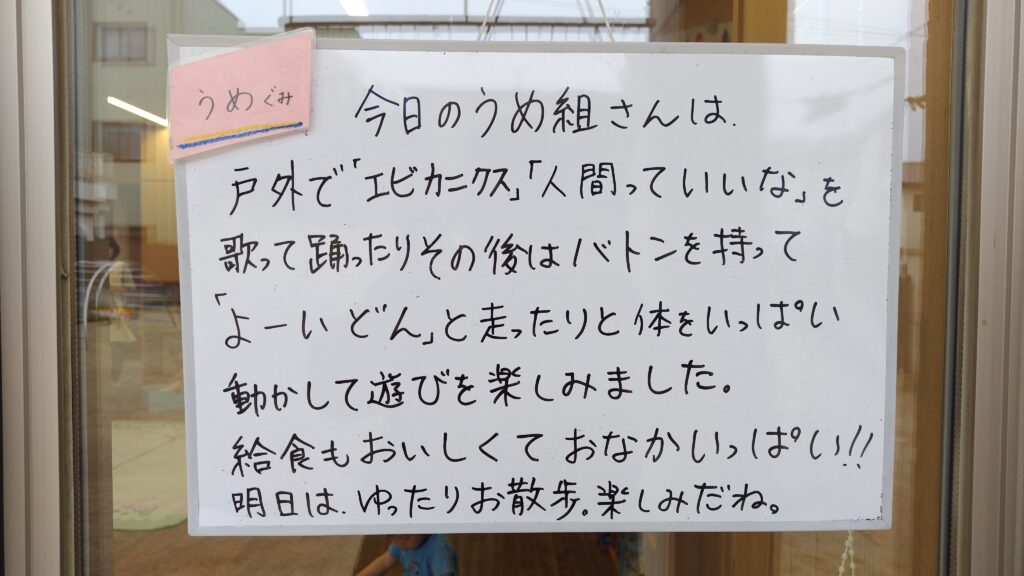 うめぐみ
今日のうめ組さんは、
戸外で「エビカニクス」「人間っていいな」を
歌って踊ったりその後はバトンを持って
「よーいどん」と走ったりと体をいっぱい
動かして遊びを楽しみました。
給食もおいしくておなかいっぱい!!
明日は、ゆったりお散歩。楽しみだね。